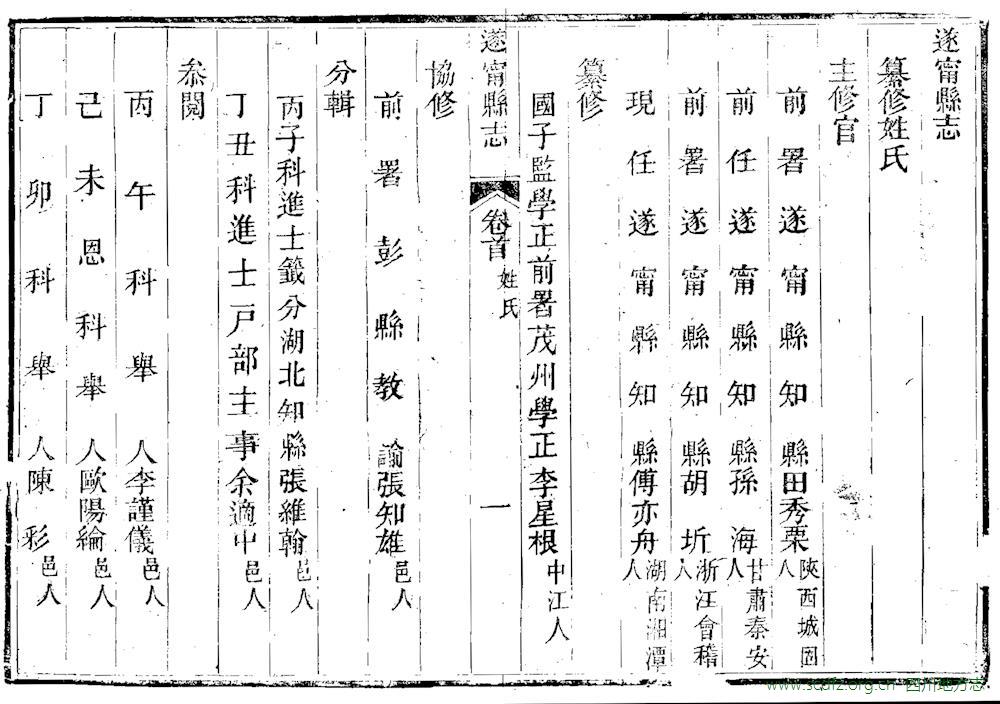 遂甯縣志
纂修姓氏
主修官
前署遂甯縣知縣田秀栗陝西城固人
前任遂甯縣知縣孫海甘肅泰安人
前署遂甯縣知縣胡圻浙江會稽人
現任遂甯縣知縣傅亦舟湖南湘潭人
纂修
國子監學正前署茂州學正李星根中江人
遂甯縣志 卷首 姓氏 一
協修
前署彭縣教諭張知雄邑人
分輯
丙子科進士籤分湖北知縣張維翰邑人
丁丑科進士戸部主事余適中邑人
叅閱
丙午科舉人李謹儀邑人
己未恩科舉人歐陽綸邑人
丁卯科舉人陳彩邑人
www.scdfz.org.cn 四川地方志